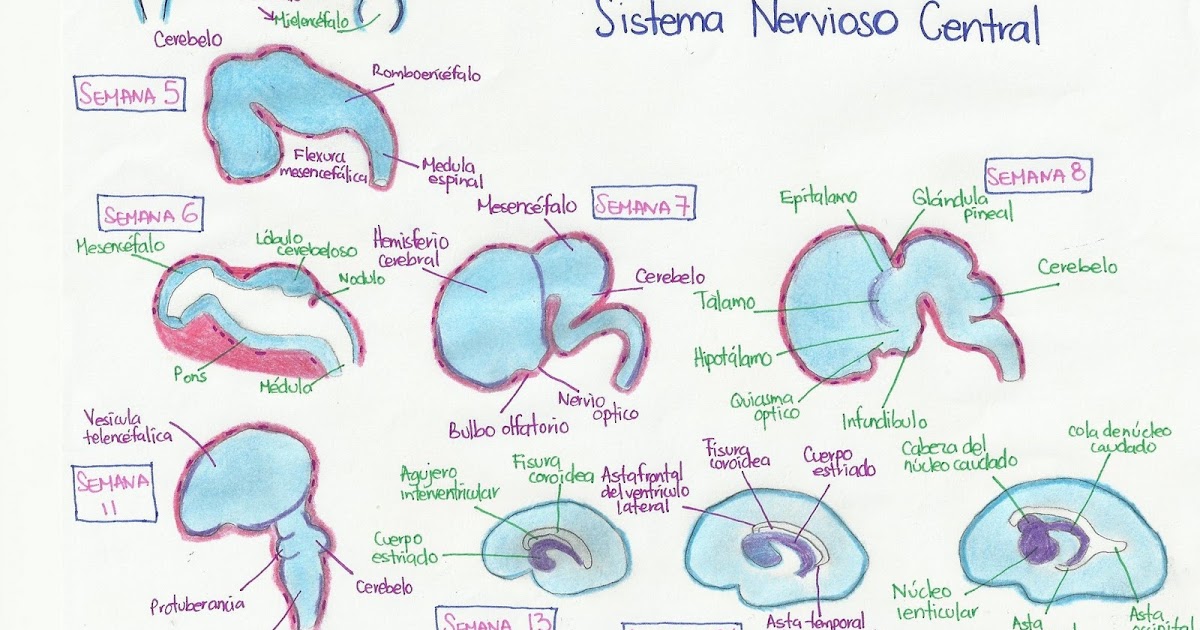 Mielencéfalo
Sistema Nervioso Central
Cerebelo
SEMANA 5
Romboencéfalo
Flexura
mesencefálica
Medula
espinal
SEMANA 6
Mesencéfalo
Lóbulo
cerebeloso
Nodulo
Pons
Médula
SEMANA 7
Mesencéfalo
Hemisferio
cerebral
Cerebelo
Nervio
optico
Bulbo olfatorio
SEMANA 8
Epítalamo
Glándula
pineal
Cerebelo
Tálamo
Hipotálamo
Quiasma
optico
Infundibulo
Vesicula
telencéfalica
SEMANA
11
Protuberancia
Cerebelo
Agujero
interventricular
Fisura
coroidea
Cuerpo
estriado
SEMANA 13
Asta frontal
del ventrículo
lateral
Fisura
coroidea
Cuerpo
estriado
Asta temporal
Cabeza del
núcleo caudado
cola de núcleo
caudado
Núcleo
lenticular
Asta
Asta